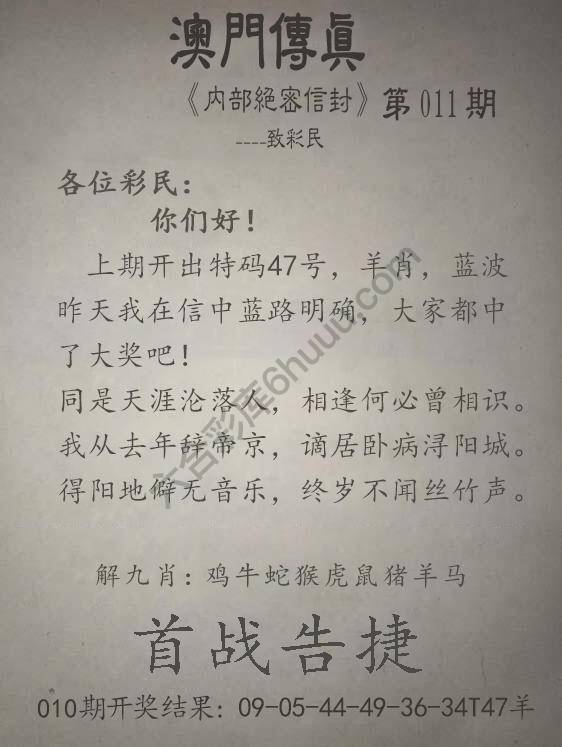 澳門傳眞
《内部絕密信封》第011期
----致彩民
各位彩民：
你们好！
上期开出特码47号，羊肖，蓝波
昨天我在信中蓝路明确，大家都中
了大奖吧！
同是天涯沦落人，相逢何必曾相识。
我从去年辞帝京，谪居卧病浔阳城。
得阳地僻无音乐，终岁不闻丝竹声。
解九肖：鸡牛蛇猴虎鼠猪羊马
首战告捷
010期开奖结果：09-05-44-49-36-34T47羊
六合彩库6huuu.com